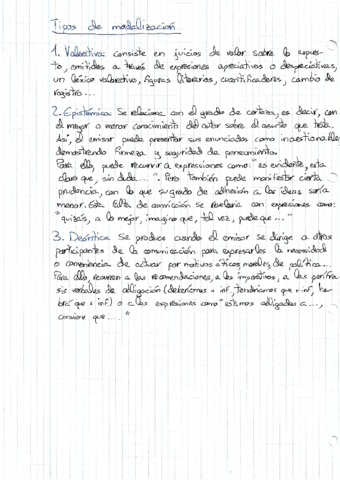 Tipos de modalización
1. Valorativa: consiste en juicios de valor sobre lo expues-
to, emitidos a través de expresiones apreciativas o despreciativas,
un léxico valorativo, figuras literarias, cuantificadores, cambio de
registro...
2. Epistémica: Se relaciona con el grado de certeza, es decir, con
el mayor o menor conocimiento del autor sobre el asunto que trata.
Así, el emisor puede presentar sus enunciados como incuestionables
demostrando firmeza y seguridad de pensamiento.
Para ello, puede recurrir a expresiones como: "es evidente, esta
claro que, sin duda...". Pero también puede manifestar cierta
prudencia, con lo que su grado de adhesión a las ideas sería
menor. Esta falta de convicción se revelaría con expresiones como:
"quizás, a lo mejor, imagino que, tal vez, puede que..."
3. Deóntica: Se produce cuando el emisor se dirige a otros
participantes de la comunicación para expresarles la necesidad
o conveniencia de actuar por motivos éticos, morales, de política...
Para ello, recurren a las recomendaciones, a los imperativos, a las perífra-
sis verbales de obligación (deberíamos + inf, tendríamos que + inf, ha-
brá que + inf.) o a las expresiones como "estamos obligados a...,
conviene que...."